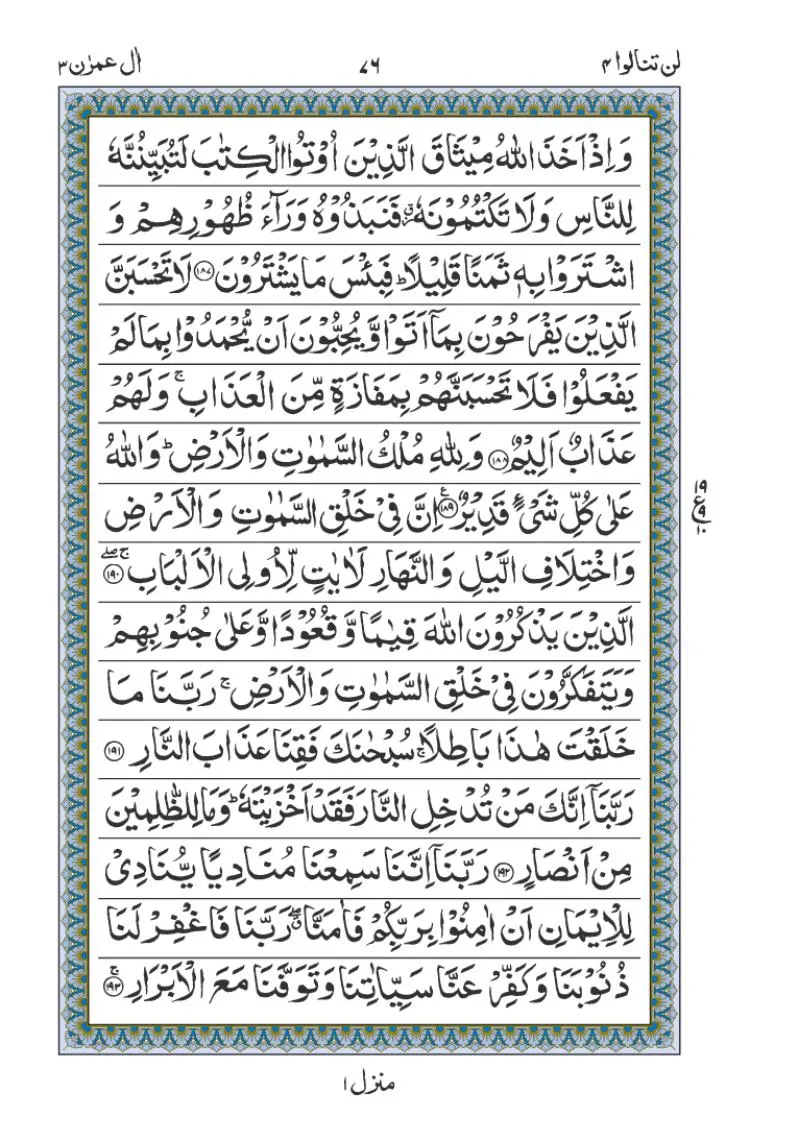 لن تنالوا ۴
۷۶
اٰل عمرٰن ۳
وَاِذْ اَخَذَ اللّٰهُ مِيْثَاقَ الَّذِيْنَ اُوْتُوا الْكِتٰبَ لَتُبَيِّنُنَّهٗ
لِلنَّاسِ وَلَا تَكْتُمُوْنَهٗ فَنَبَذُوْهُ وَرَآءَ ظُهُوْرِهِمْ وَ
اشْتَرَوْا بِهٖ ثَمَنًا قَلِيْلًا ؕ فَبِئْسَ مَا يَشْتَرُوْنَ ۝۱۸۷ لَا تَحْسَبَنَّ
الَّذِيْنَ يَفْرَحُوْنَ بِمَاۤ اَتَوْا وَّيُحِبُّوْنَ اَنْ يُّحْمَدُوْا بِمَا لَمْ
يَفْعَلُوْا فَلَا تَحْسَبَنَّهُمْ بِمَفَازَةٍ مِّنَ الْعَذَابِ ۚ وَلَهُمْ
عَذَابٌ اَلِيْمٌ ۝۱۸۸ وَلِلّٰهِ مُلْكُ السَّمٰوٰتِ وَالْاَرْضِ ؕ وَاللّٰهُ
عَلٰى كُلِّ شَيْءٍ قَدِيْرٌ ۝۱۸۹ اِنَّ فِيْ خَلْقِ السَّمٰوٰتِ وَالْاَرْضِ
وَاخْتِلَافِ الَّيْلِ وَالنَّهَارِ لَاٰيٰتٍ لِّاُولِى الْاَلْبَابِ ۝۱۹۰
الَّذِيْنَ يَذْكُرُوْنَ اللّٰهَ قِيٰمًا وَّقُعُوْدًا وَّعَلٰى جُنُوْبِهِمْ
وَيَتَفَكَّرُوْنَ فِيْ خَلْقِ السَّمٰوٰتِ وَالْاَرْضِ ۚ رَبَّنَا مَا
خَلَقْتَ هٰذَا بَاطِلًا ۚ سُبْحٰنَكَ فَقِنَا عَذَابَ النَّارِ ۝۱۹۱
رَبَّنَاۤ اِنَّكَ مَنْ تُدْخِلِ النَّارَ فَقَدْ اَخْزَيْتَهٗ ؕ وَمَا لِلظّٰلِمِيْنَ
مِنْ اَنْصَارٍ ۝۱۹۲ رَبَّنَاۤ اِنَّنَا سَمِعْنَا مُنَادِيًا يُّنَادِيْ
لِلْاِيْمَانِ اَنْ اٰمِنُوْا بِرَبِّكُمْ فَاٰمَنَّا ۖ رَبَّنَا فَاغْفِرْ لَنَا
ذُنُوْبَنَا وَكَفِّرْ عَنَّا سَيِّاٰتِنَا وَتَوَفَّنَا مَعَ الْاَبْرَارِ ۝۱۹۳
۱۹
ع
۹
۱۰
منزل ۱